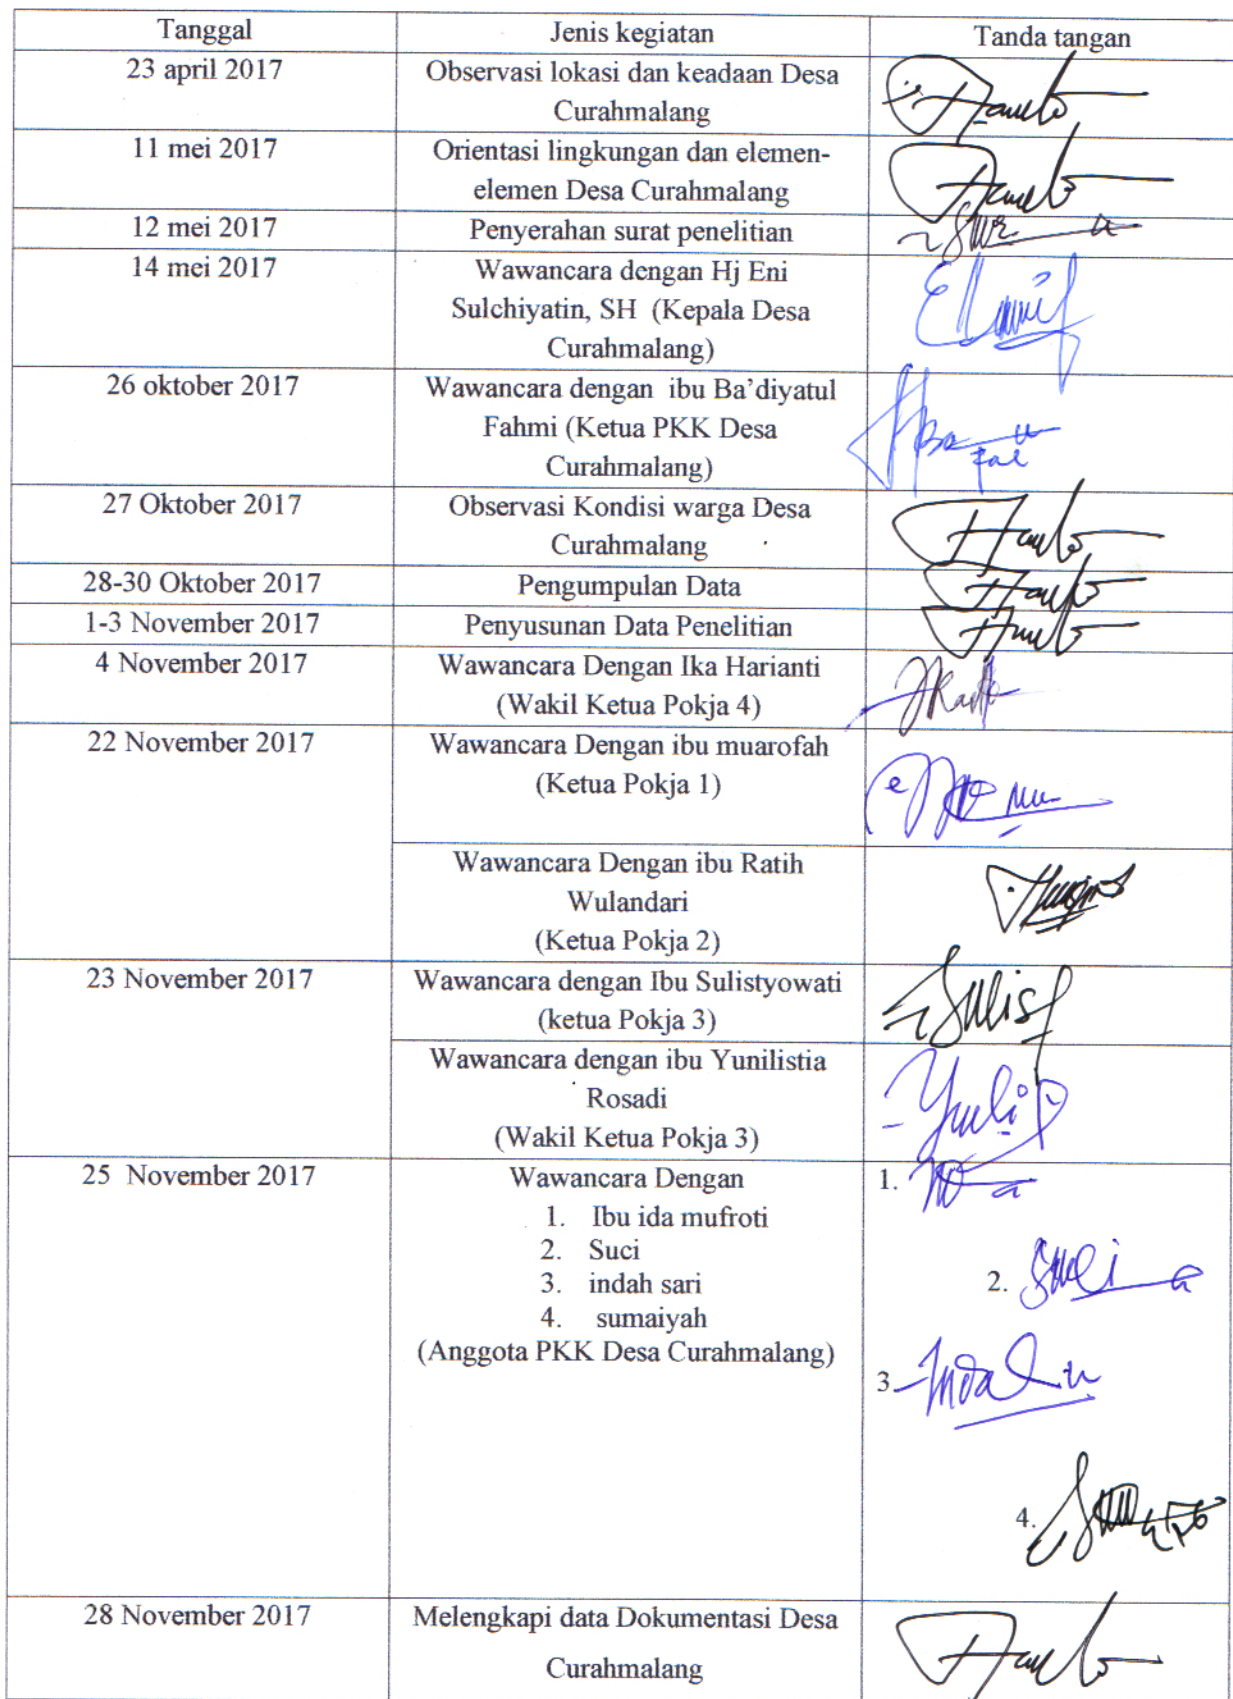 Tanggal Jenis kegiatan Tanda tangan
23 april 2017 Observasi lokasi dan keadaan Desa
Curahmalang
11 mei 2017 Orientasi lingkungan dan elemen-
elemen Desa Curahmalang
12 mei 2017 Penyerahan surat penelitian
14 mei 2017 Wawancara dengan Hj Eni
Sulchiyatin, SH (Kepala Desa
Curahmalang)
26 oktober 2017 Wawancara dengan ibu Ba’diyatul
Fahmi (Ketua PKK Desa
Curahmalang)
27 Oktober 2017 Observasi Kondisi warga Desa
Curahmalang
28-30 Oktober 2017 Pengumpulan Data
1-3 November 2017 Penyusunan Data Penelitian
4 November 2017 Wawancara Dengan Ika Harianti
(Wakil Ketua Pokja 4)
22 November 2017 Wawancara Dengan ibu muarofah
(Ketua Pokja 1)
Wawancara Dengan ibu Ratih
Wulandari
(Ketua Pokja 2)
23 November 2017 Wawancara dengan Ibu Sulistyowati
(ketua Pokja 3)
Wawancara dengan ibu Yunilistia
Rosadi
(Wakil Ketua Pokja 3)
25 November 2017 Wawancara Dengan 1.
1. Ibu ida mufroti
2. Suci
3. indah sari 2.
4. sumaiyah
(Anggota PKK Desa Curahmalang)
3
4.
28 November 2017 Melengkapi data Dokumentasi Desa
Curahmalang